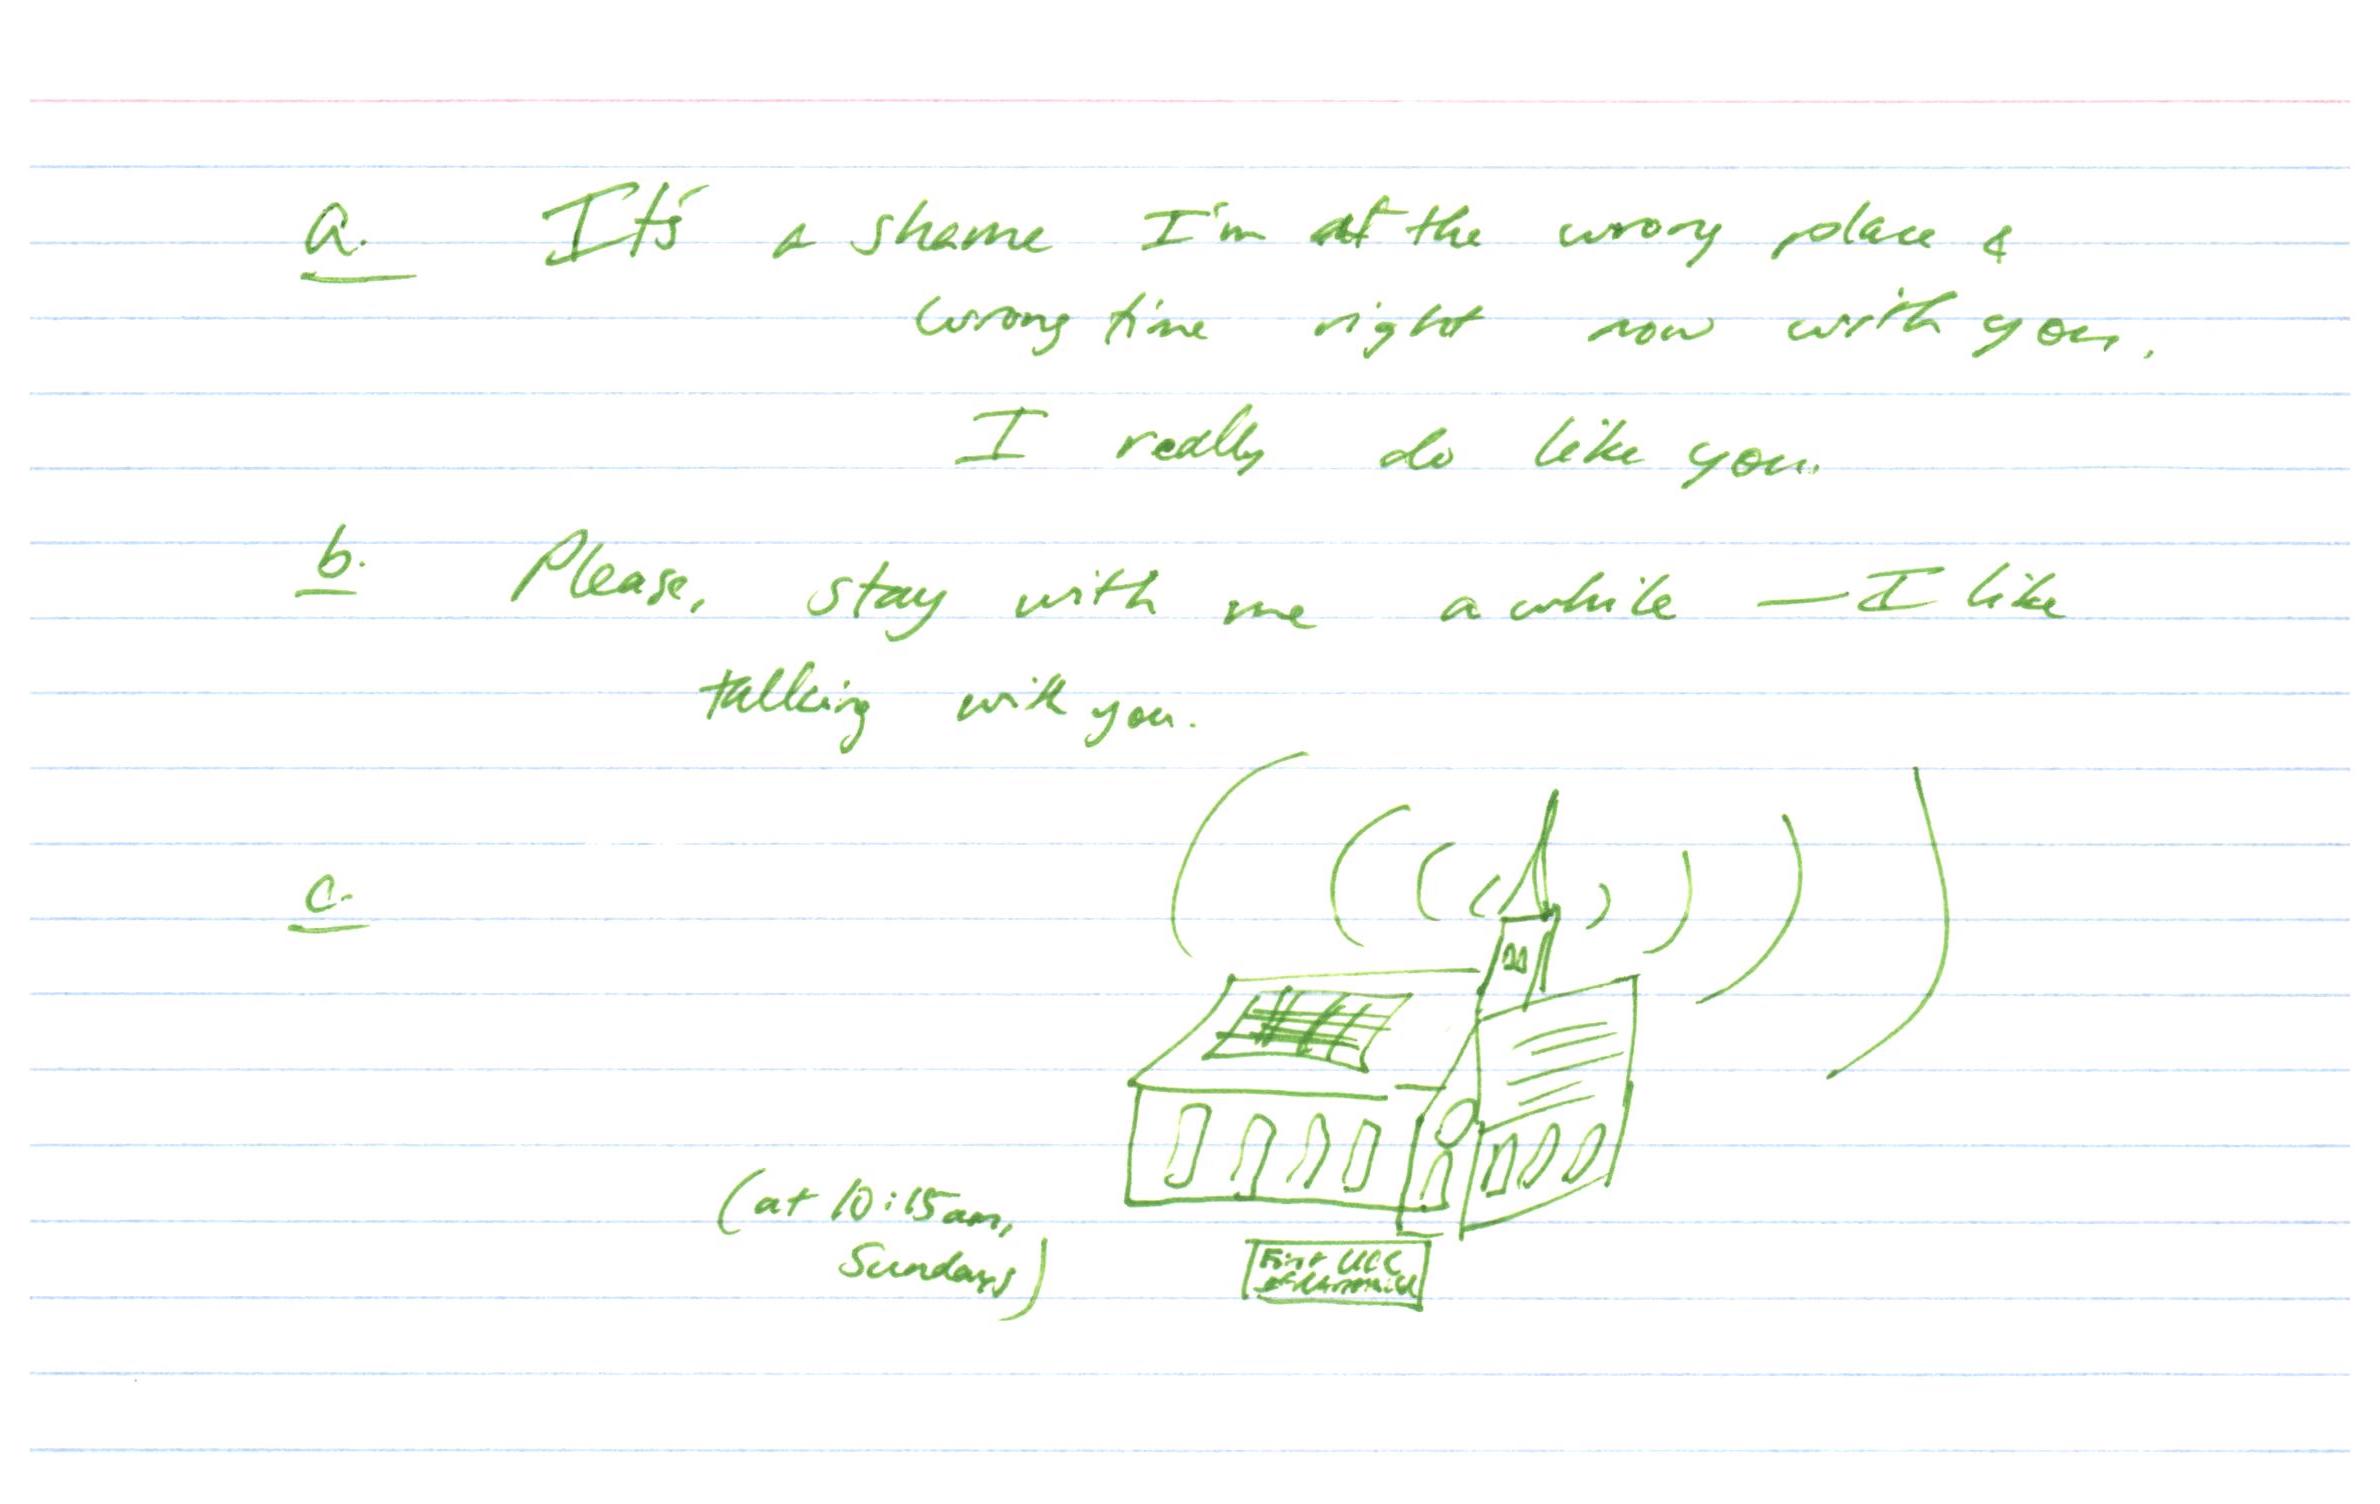 a. It's a shame I'm at the wrong place &
wrong time right now with you.
I really do like you.
b. Please, stay with me awhile — I like
talking with you.
c.
(at 10:15am,
Sundays)
First UCC